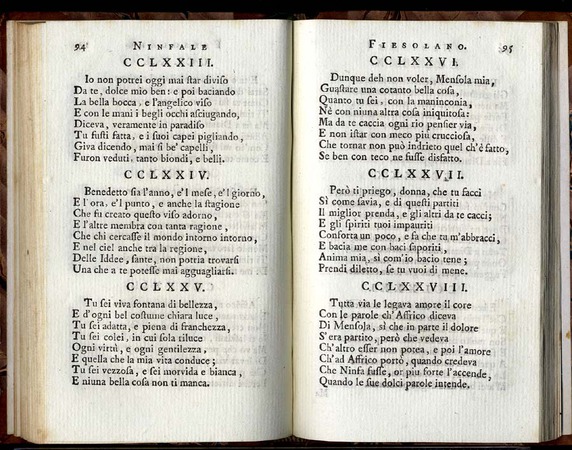 94 NINFALE
CCLXXIII.
Io non potrei oggi mai ſtar diviſo
Da te, dolce mio ben: e poi baciando
La bella bocca, e l'angelico viſo
E con le mani i begli occhi aſciugando,
Diceva, veramente in paradiſo
Tu fuſti fatta, e i ſuoi capei pigliando,
Giva dicendo, mai ſi be' capelli,
Furon veduti, tanto biondi, e belli.
CCLXXIV.
Benedetto ſia l'anno, e'l meſe, e'l giorno,
E l'ora, e'l punto, e anche la ſtagione
Che fu creato queſto viſo adorno,
E l'altre membra con tanta ragione,
Che chi cercaſſe il mondo intorno intorno,
E nel ciel anche tra la regione,
Delle Iddee, ſante, non potria trovarſi
Una che a te poteſſe mai agguagliarſi.
CCLXXV.
Tu ſei viva fontana di bellezza,
E d'ogni bel coſtume chiara luce,
Tu ſei adatta, e piena di franchezza,
Tu ſei colei, in cui ſola riluce
Ogni virtù, e ogni gentilezza,
E quella che la mia vita conduce;
Tu ſei vezzoſa, e ſei morvida e bianca,
E niuna bella coſa non ti manca.
FIESOLANO. 95
CCLXXVI.
Dunque deh non voler, Menſola mia,
Guaſtare una cotanto bella coſa,
Quanto tu ſei, con la maninconia,
Nè con niuna altra coſa iniquitoſa:
Ma da te caccia ogni rio penſier via,
E non iſtar con meco più crucciosa,
Che tornar non può indrieto quel ch'è fatto,
Se ben con teco ne fuſſe disfatto.
CCLXXVII.
Però ti priego, donna, che tu facci
Sì come ſavia, e di queſti partiti
Il miglior prenda, e gli altri da te cacci;
E gli ſpiriti tuoi impauriti
Conforta un poco, e fa che tu m'abbracci,
E bacia me con baci ſaporiti,
Anima mia, sì com'io bacio tene;
Prendi diletto, ſe tu vuoi di mene.
CCLXXVIII.
Tutta via le legava amore il core
Con le parole ch'Affrico diceva
Di Menſola, sì che in parte il dolore
S'era partito, però che vedeva
Ch'altro eſſer non potea, e poi l'amore
Ch'ad Affrico portò, quando credeva
Che Ninfa fuſſe, or più forte l'accende,
Quando le ſue dolci parole intende.